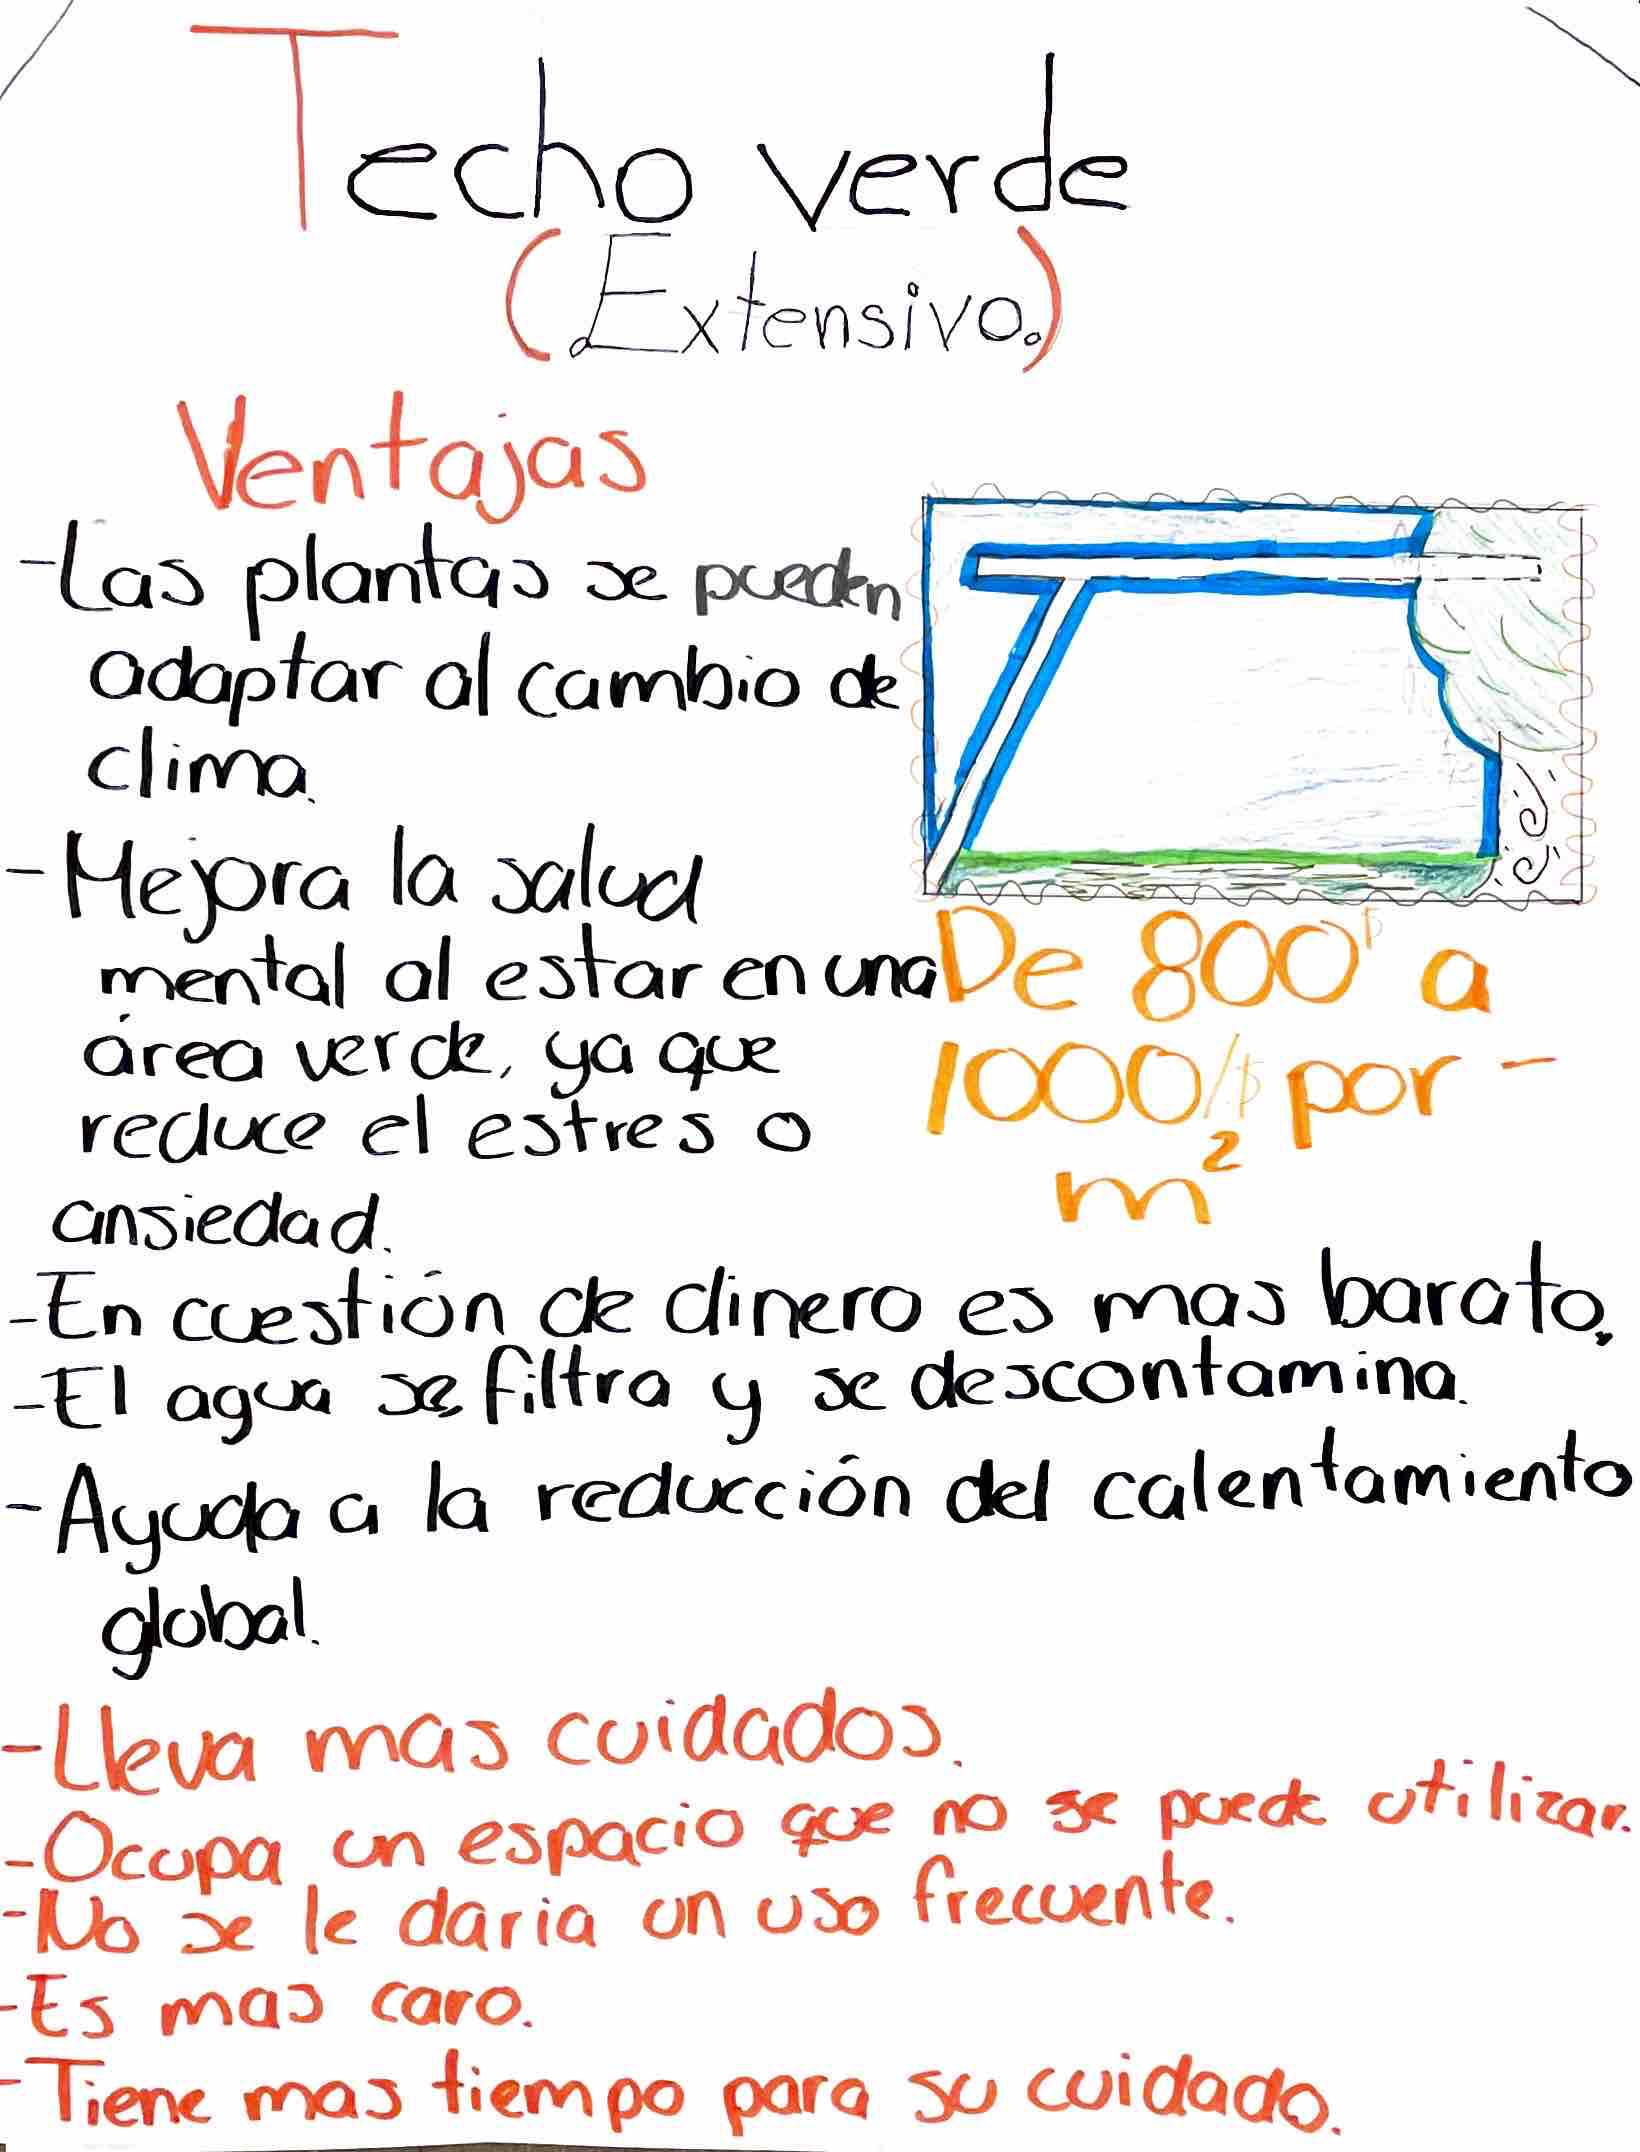 Techo verde
(Extensivo.)
Ventajas
-Las plantas se pueden
adaptar al cambio de
clima.
-Mejora la salud
mental al estar en una
área verde, ya que
reduce el estres o
ansiedad.
De 800$ a
1000/$ por -
m²
-En cuestión de dinero es mas barato.
-El agua se filtra y se descontamina.
-Ayuda a la reducción del calentamiento
global.
-Lleva mas cuidados.
-Ocupa un espacio que no se puede utilizar.
-No se le daria un uso frecuente.
-Es mas caro.
-Tiene mas tiempo para su cuidado.